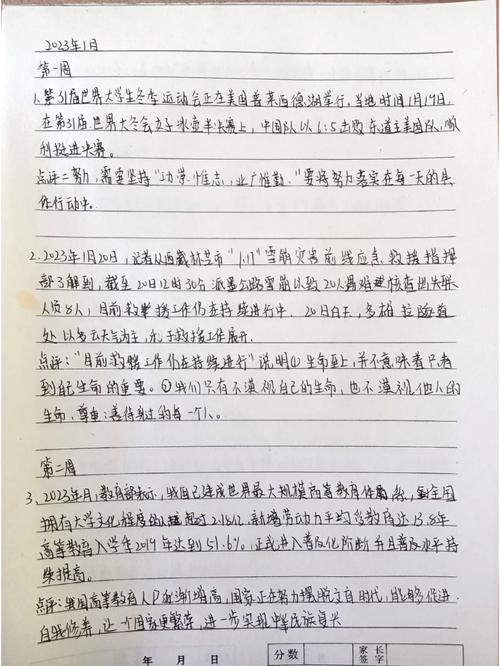 2023年1月
第一周
1.第31届世界大学生冬季运动会正在美国普莱西德湖举行,当地时间1月19日,
在第31届世界大冬会女子冰壶半决赛上,中国队以6:5击败东道主美国队,顺
利挺进决赛。
点评:努力,需要坚持"功崇惟志,业广惟勤."要将努力落实在每一天的具
体行动中.
2.2023年1月20日,记者从西藏林芝市"1.17"雪崩灾害前线应急救援指挥
部了解到,截至20日12时30分派墨公路雪崩以致20人遇难 核查出失联
人员8人,目前救援工作仍在持续进行中. 20日白天,多雄拉隧道
处以多云天气为主,利于救援工作展开.
点评:"目前救援工作仍在持续进行"说明①生命至上,并不意味着只看
到自己生命的重要.②我们只有不漠视自己的生命,也不漠视他人的
生命,尊重、善待身边的每一个人。
第二周
3、2023年 月,教育部表示,我国已建成世界最大规模高等教育体系,全国
拥有大学文化程度的人 超过2.18亿.新增劳动力平均受教育达13.8年
高等教育入学率2019年达到51.6%.正式进入普及化阶断并且普及水平持
续提高。
点评:我国高等教育人口逐渐增高,国家正在努力摆脱文盲时代,能够促进
自我修养,让一个国家更繁荣,进一步实现中华民族复兴
年 月 日 分数 家长签字